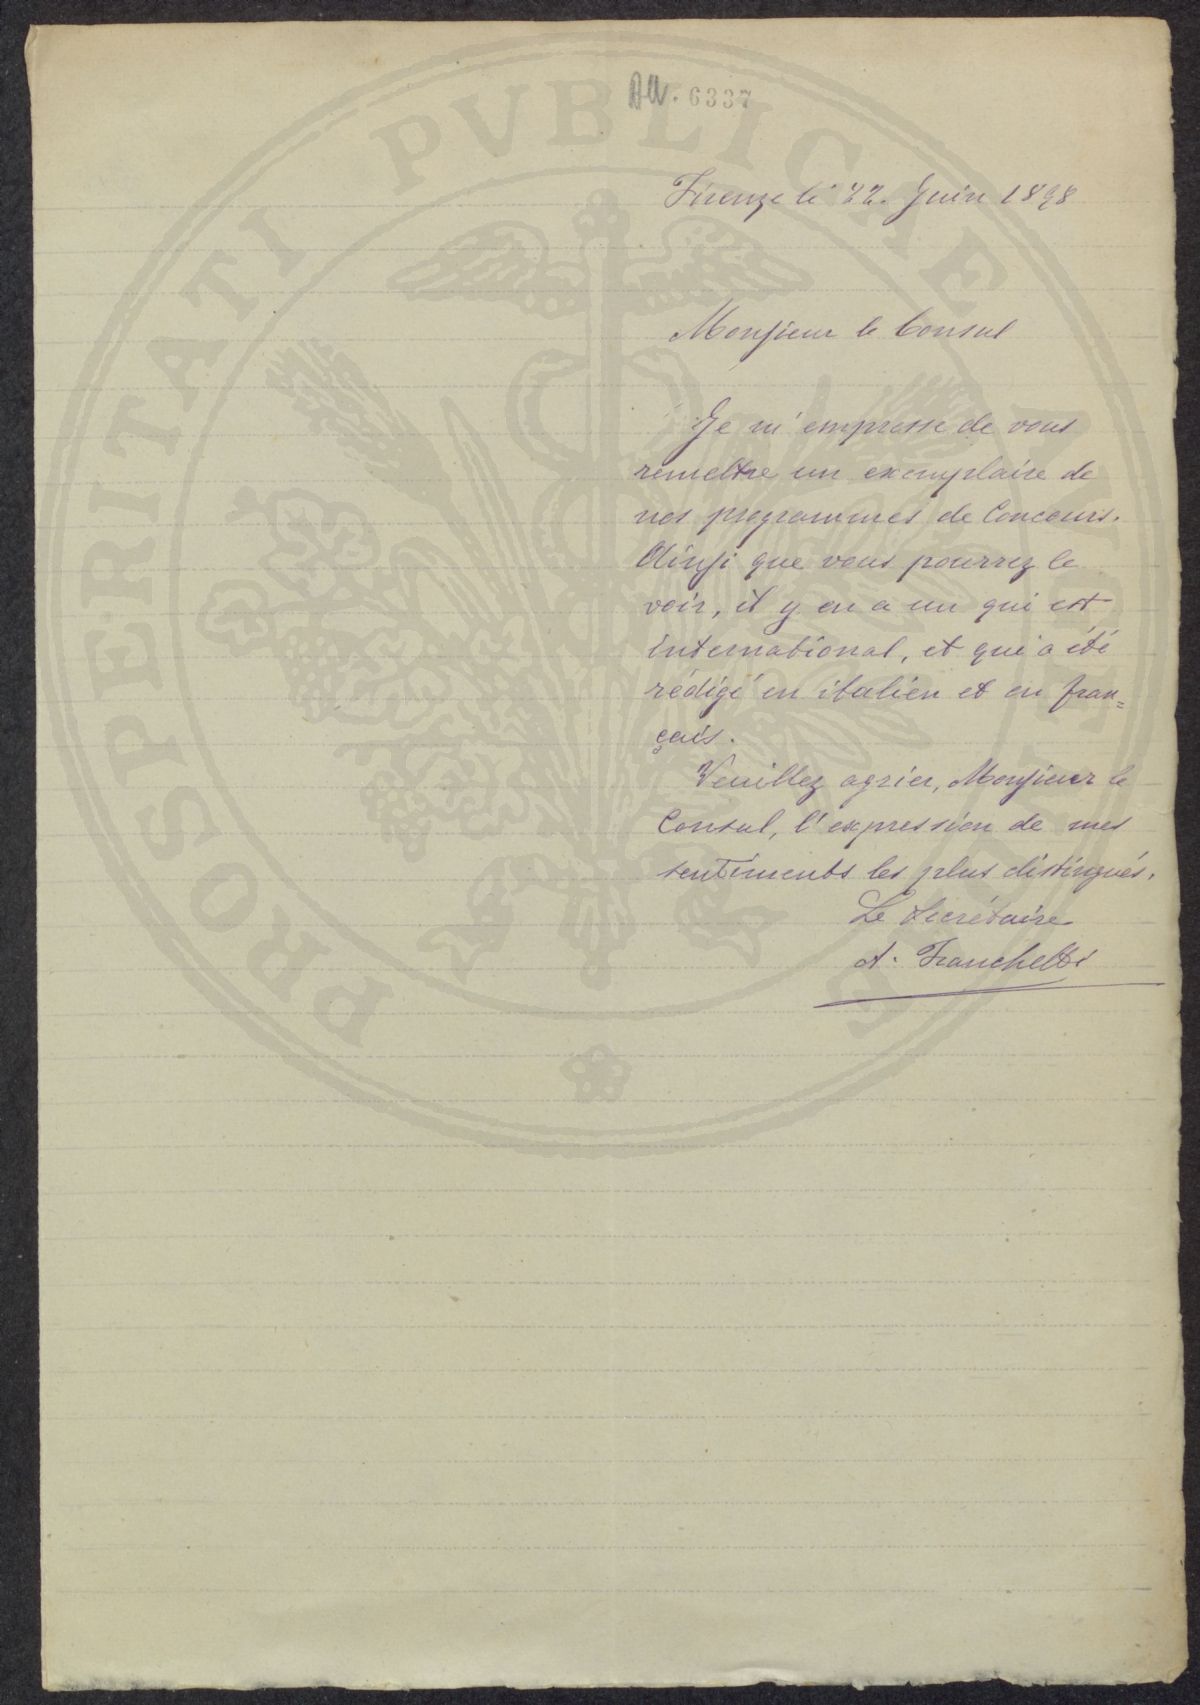 AU. 6337
Firenze li 22. Juin 1898
Monsieur le Consul
Je m'empresse de vous
remettre un exemplaire de
nos programmes de Concours.
Ainsi que vous pourrez le
voir, il y en a un qui est
international, et qui a été
rédigé en italien et en fran=
çais.
Veuillez agréer, Monsieur le
Consul, l'expression de mes
sentiments les plus distingués.
Le Secrétaire
A. Franchetti
PROSPERITATI PVBLICAE